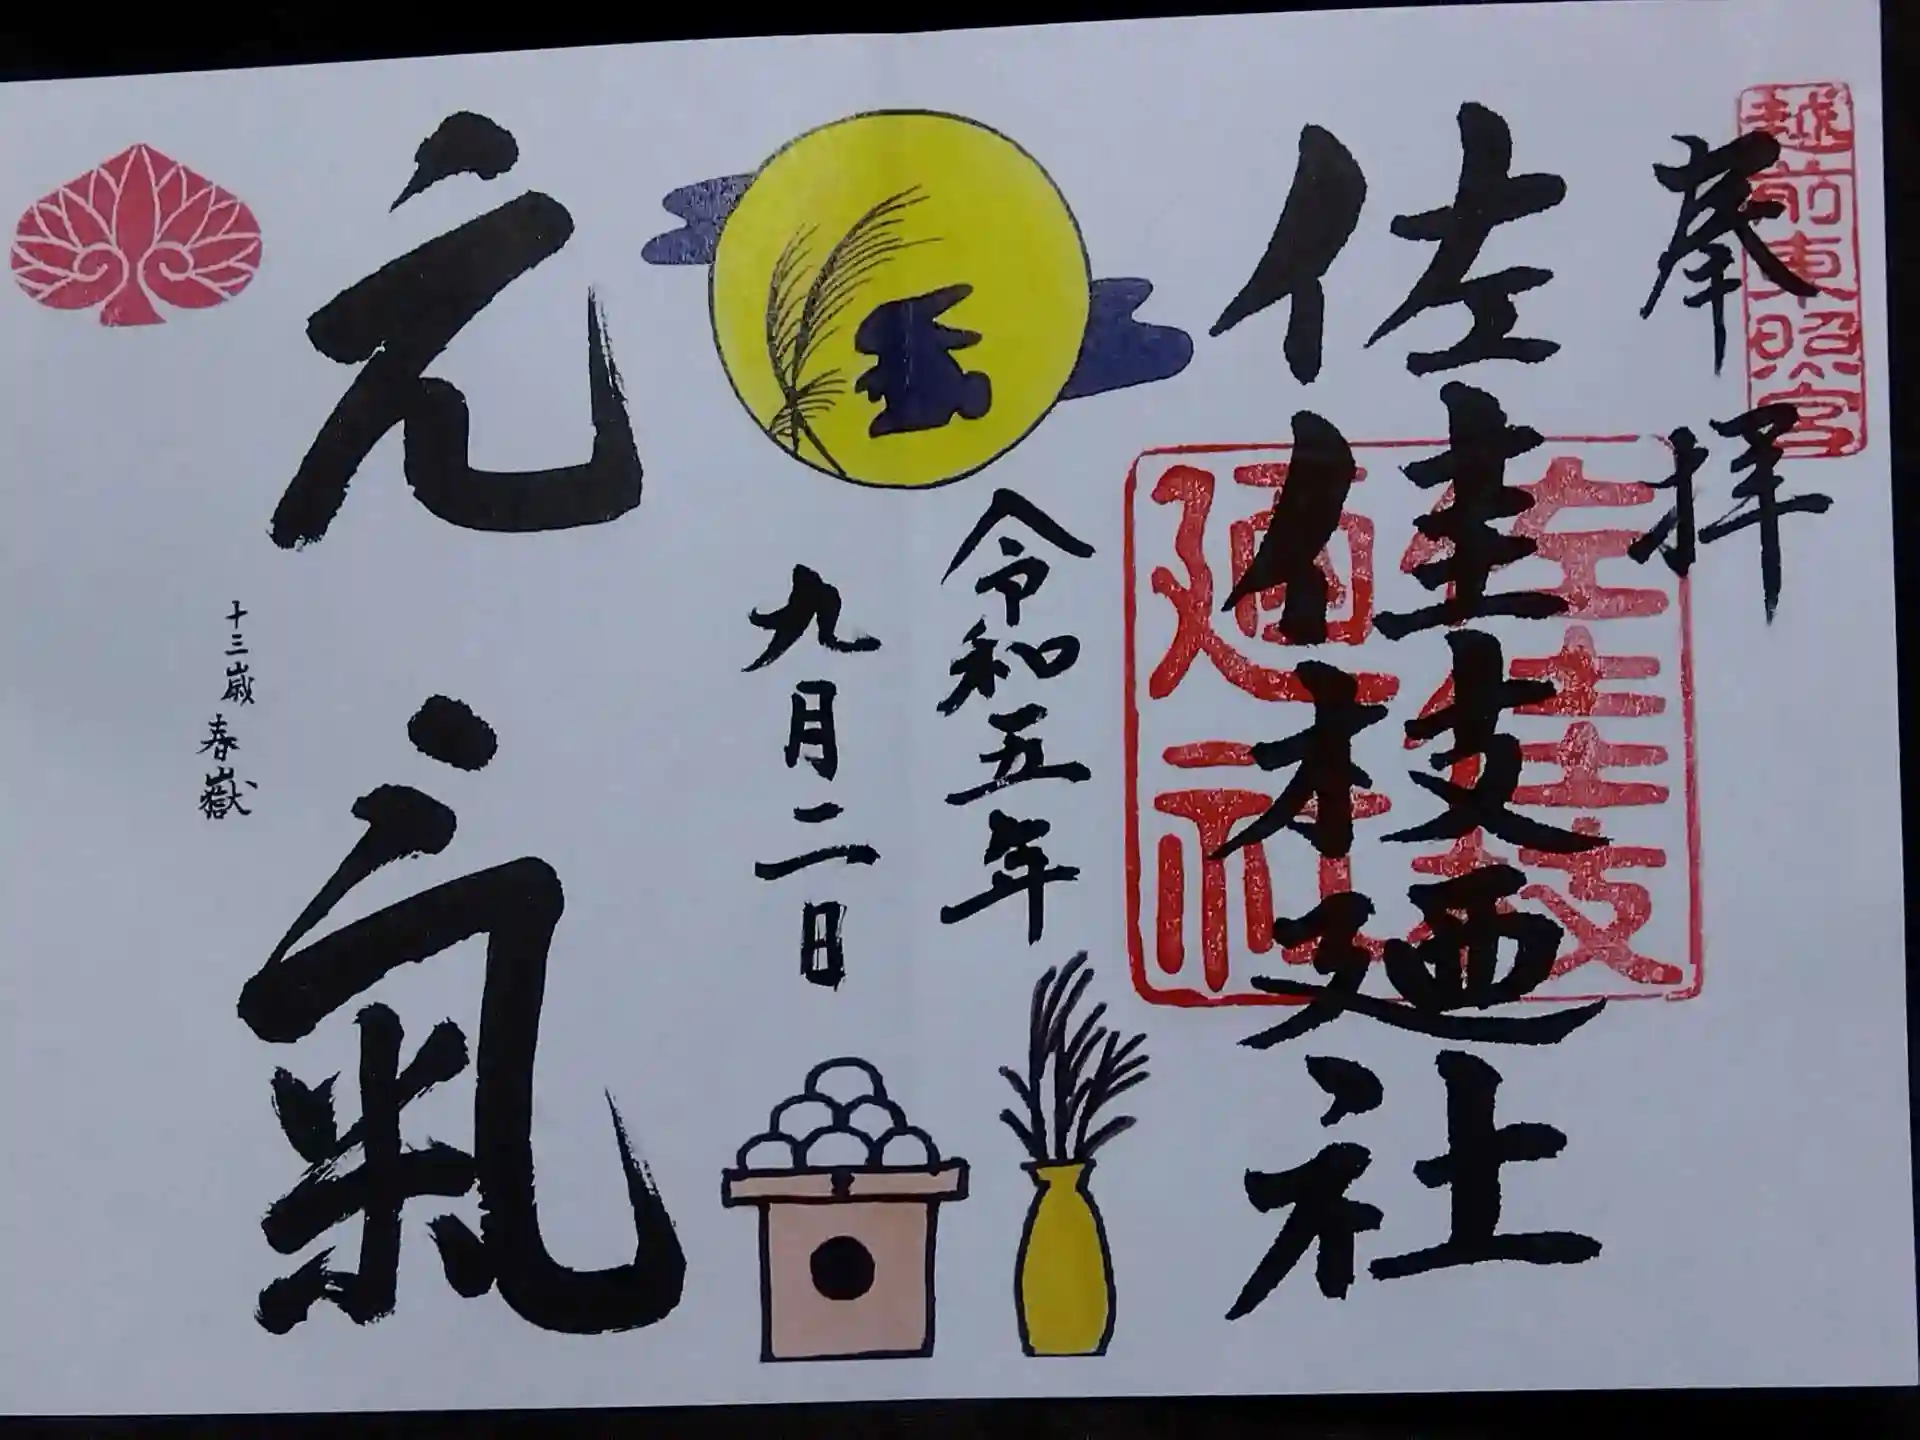 越前東照宮
奉拝
佐佳枝廼社
佐佳枝廼社
令和五年
九月二日
元氣
十三歳 春嶽